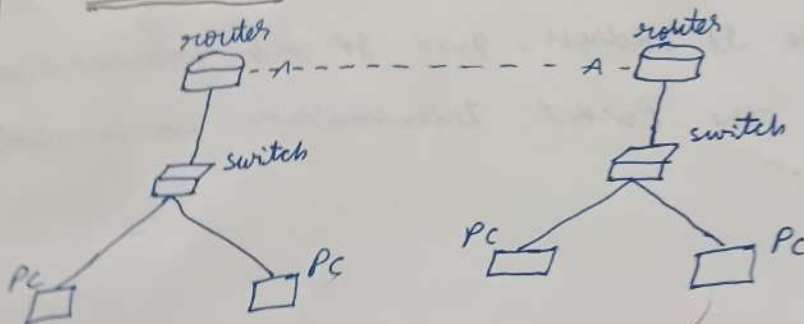 router router
A A
switch
switch
PC PC
PC PC